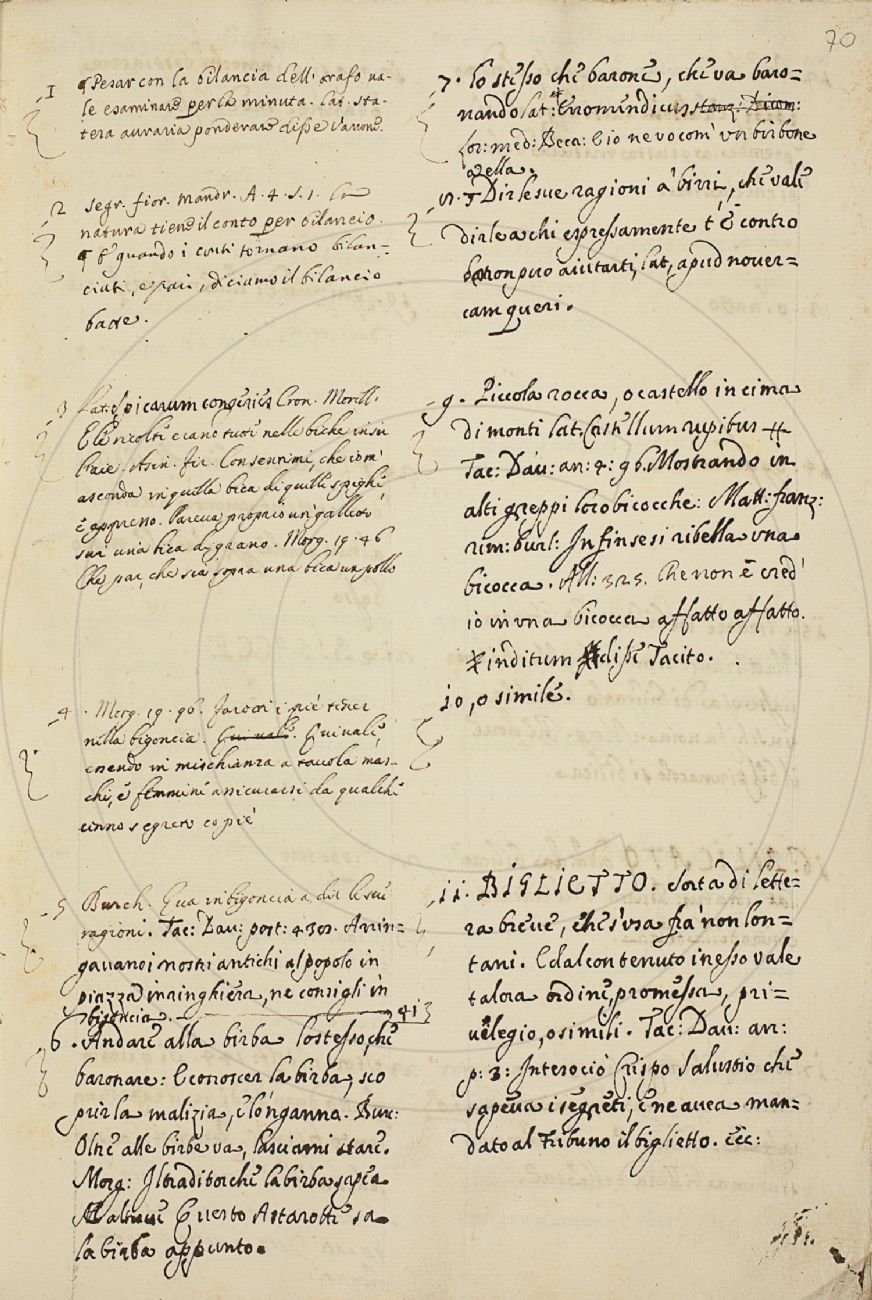 70
1 ¶ Pesar con la bilancia dell' orafo va-
le esaminare per la minuta. lat. sta-
tera auraria ponderare disse Varrone.
2 segr. fior. mandr. A. 4. s. 1. La
natura tiene il conto per bilancio.
¶ E quando i conti tornano bilan-
ciati, e pari, diciamo il bilancio
batte.
3 Lat. spicarum congeries Cron. Morell.
E le ricolti erano tutti nelle biche
Asin. fir. Consentimi, che io m'
asconda in quella bica di quelle spighe
è appresso. Pareva proprio un gallo
sur una bica di grano. Morg. 19. 46
Che par, che sia sopra una bica un pollo
4. Morg. 19. 96. i piè tener
nella bigoncia. Qui vale. Qui vale,
essendo in mischianza a tavola mas-
chi, e femmine assicurarsi da qualche
cenno segreto co piè
5 Burch. Qua in bigoncia a dir le sue
ragioni. Tac: Dav: post: 430. Arrin=
gavano i nostri antichi al popolo in
piazza in ringhiera, ne consigli in
bigoncia.
6. Andare alla birba lo stesso, che
baronare: E conoscer la birba, sco
prir la malizia, e lo 'nganna. Bur:
Oltre alle birbe va, lasciami stare.
Morg: Il traditor che la birba sapea
Questo Astarotte sa
la birba appunto.
7. lo stesso che barone, che va baro=
nando lat: Erro mendicus
for: med: Beca: E io ne vo com' un birbone
a vella.
8. ¶ Dir le sue ragioni a' birri, che vale
dirle a chi espressamente t'è contro
e non può aiutarti, lat, apud nover=
cam queri.
9. Piccola rocca, o castello in cima
di monti lat. Castellum rupibus #
Tac: Dav: an: 4: 96. Mostrando in
alti greppi loro bicocche: Matt: franz:
rim: burl: In fin se si ribella una
bicocca. All: 325. Che non è cred'
io in una bicocca affatto affatto.
# inditum disse Tacito.
10, o simile.
11. BIGLIETTO. Sorta di lette=
ra breve, che s'usa fra' non lon=
tani. E dal contenuto in esso vale
talora ordine, promessa, pri=
vilegio, o simili. Tac: Dav: an:
p: 3: Interocìò Crispo Salustio che
sapeva i segreti, e ne avea man=
dato al Tribuno il biglietto. ecc: